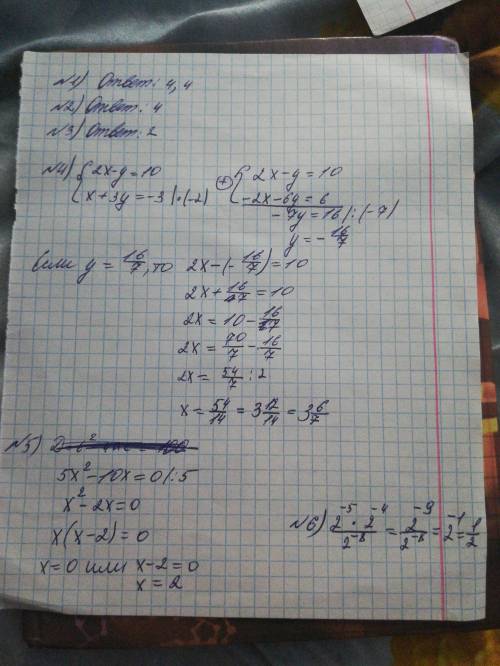 №1) Ответ: 4,4
№2) Ответ: 4
№3) Ответ: 2
№4) { 2x-y=10
x+3y=-3 |·(-2)
⊕ { 2x-y=10
-2x-6y=6
-7y=16 |:(-7)
y=-16/7
Если y=16/7, то 2x-(-16/7)=10
2x+16/7=10
2x=10-16/7
2x=70/7-16/7
2x=54/7:2
x=54/14=3 12/14=3 6/7
№5)
5x²-10x=0 |:5
x²-2x=0
x(x-2)=0
x=0 или x-2=0
x=2
№6) 2⁻⁵·2⁻⁴/2⁻⁸=2⁻⁹/2⁻⁸=2⁻¹=1/2